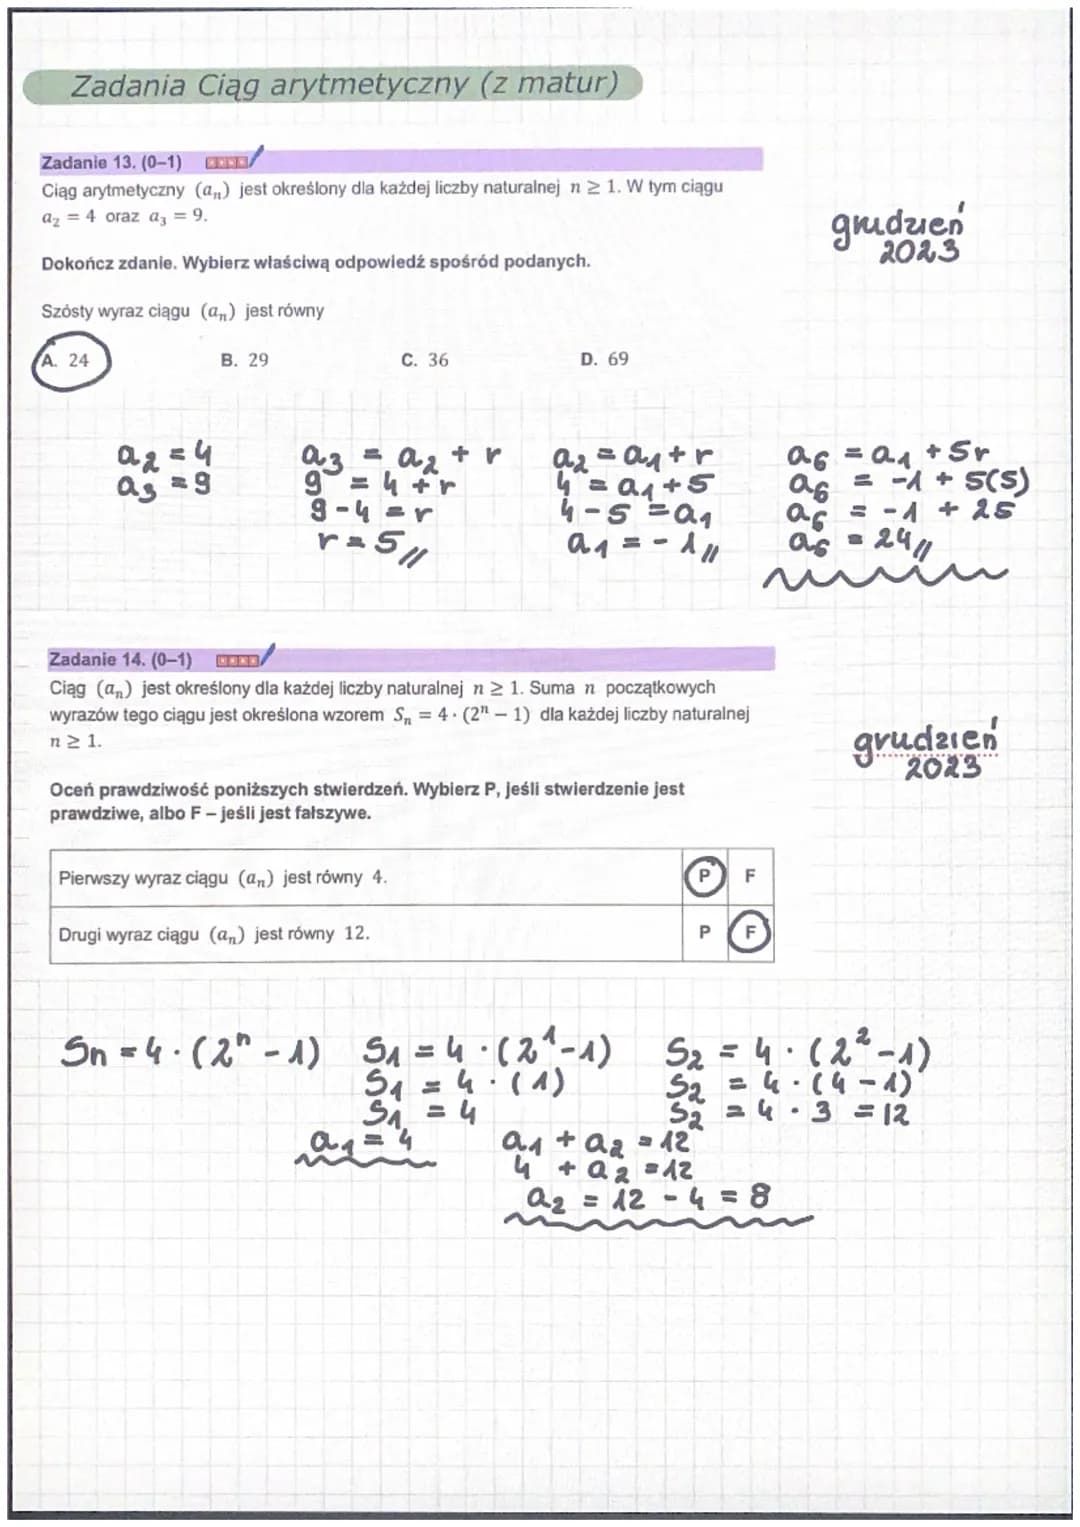 Zadania Ciąg arytmetyczny (z matur)
Zadanie 13. (0–1)
Ciąg arytmetyczny (aₙ) jest określony dla każdej liczby naturalnej n ≥ 1. W tym ciągu
a₂ = 4 oraz a₃ = 9.
grudzień
2023
Dokończ zdanie. Wybierz właściwą odpowiedź spośród podanych.
Szósty wyraz ciągu (aₙ) jest równy
A. 24 B. 29 C. 36 D. 69
a₂ = 4
a₃ = 9
a₃ = a₂ + r
9 = 4 + r
9 - 4 = r
r = 5 //
a₂ = a₁ + r
4 = a₁ + 5
4 - 5 = a₁
a₁ = - 1 //
a₆ = a₁ + 5r
a₆ = -1 + 5(5)
a₆ = -1 + 25
a₆ = 24 //
Zadanie 14. (0–1)
Ciąg (aₙ) jest określony dla każdej liczby naturalnej n ≥ 1. Suma n początkowych
wyrazów tego ciągu jest określona wzorem Sₙ = 4 · (2ⁿ – 1) dla każdej liczby naturalnej
n ≥ 1.
grudzień
2023
Oceń prawdziwość poniższych stwierdzeń. Wybierz P, jeśli stwierdzenie jest
prawdziwe, albo F – jeśli jest fałszywe.
Pierwszy wyraz ciągu (aₙ) jest równy 4. P F
Drugi wyraz ciągu (aₙ) jest równy 12. P F
Sn = 4 · (2ⁿ - 1)
S₁ = 4 · (2¹ - 1)
S₁ = 4 · (1)
S₁ = 4
a₁ = 4
S₂ = 4 · (2² - 1)
S₂ = 4 · (4 - 1)
S₂ = 4 · 3 = 12
a₁ + a₂ = 12
4 + a₂ = 12
a₂ = 12 - 4 = 8